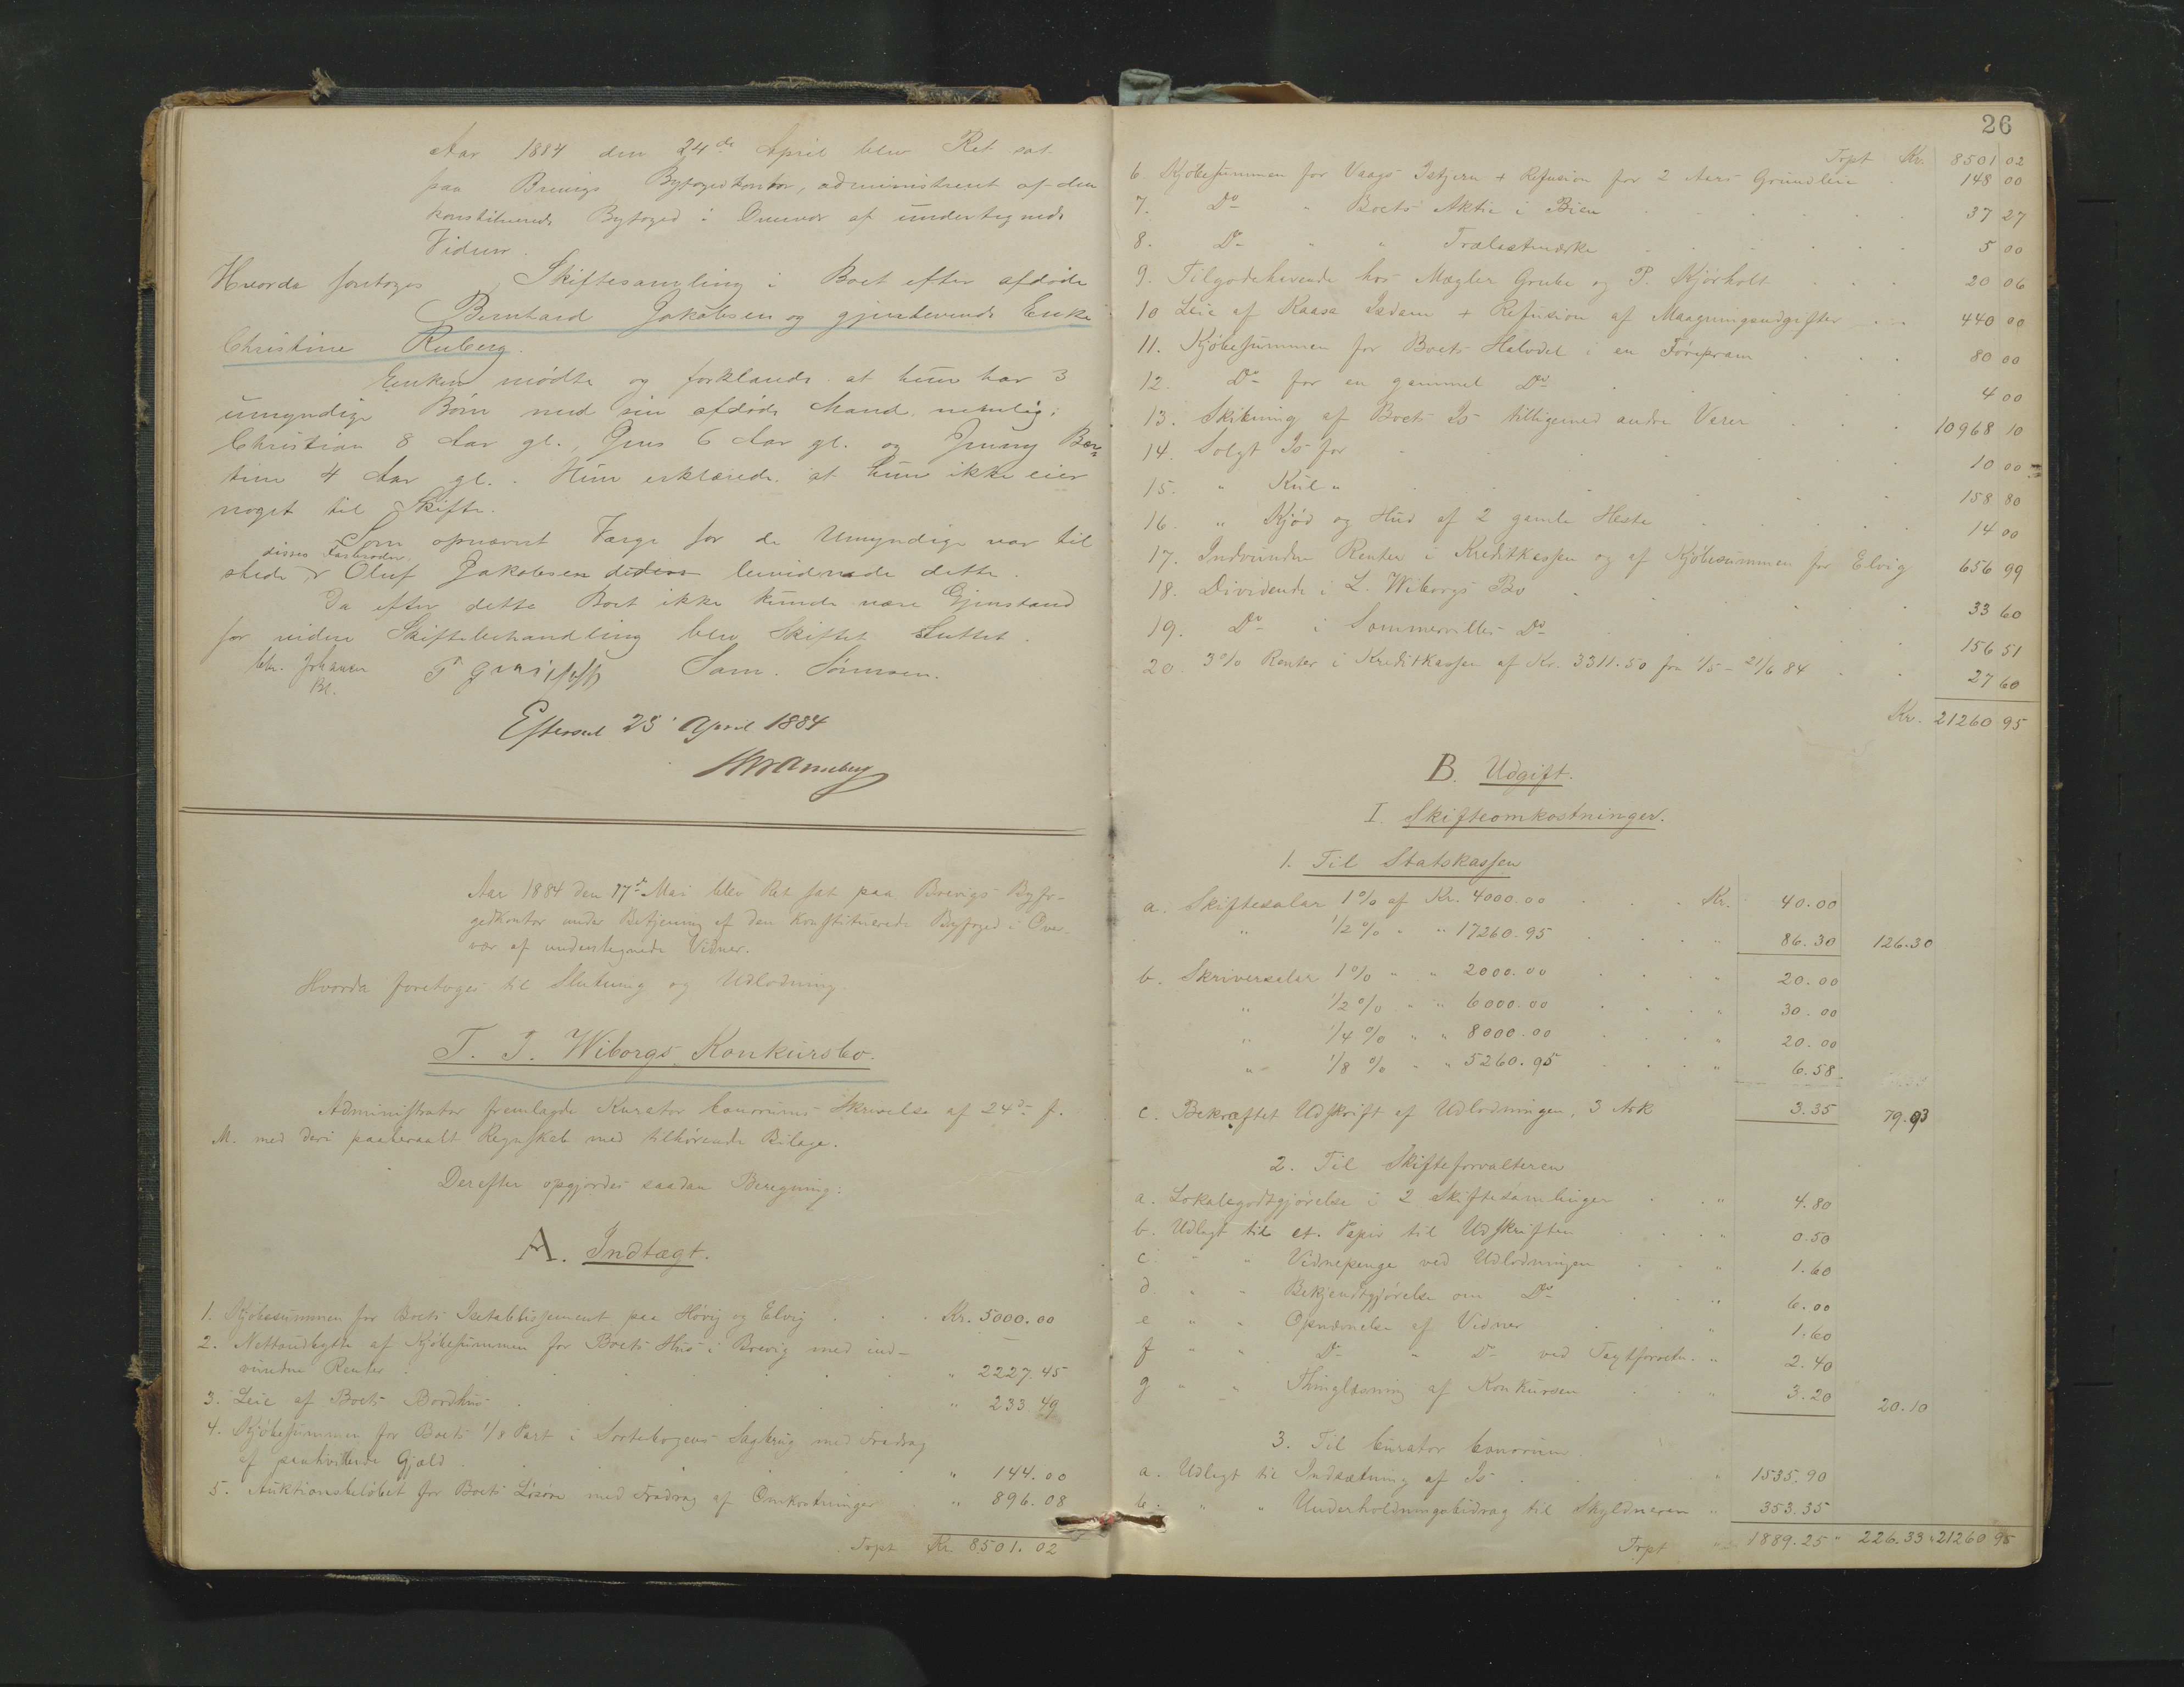 Aar 1884 den 24de April blev Ret sat
paa Brevigs Byfogedkontor, administreret af den
konstituerede Byfoged i Overvær af undertegnede
Vidner.
Hvorda foretoges Skiftesamling i Boet efter afdøde
Bernhard Jakobsen og gjenlevende Enke
Christine Ruberg.
Enken mødte og forklarede at hun har 3
umyndige Børn med sin afdøde Mand nemlig:
Christian 8 Aar gl., Jens 6 Aar gl. og Jenny Ber-
tine 4 Aar gl. . Hun erklærede at hun ikke eier
noget til Skifte.
Som opnævnt Værge for de Umyndige var til
disses Farbroder
stede Oluf Jakobsen bevidnede dette.
Da efter dette Boet ikke kunde være Gjenstand
for videre Skiftebehandling blev Skiftet Sluttet.
Chr. Johansen Sam. Sørensen.
Bf.
Efterseet 25' April 1884
Aar 1884 den 17de Mai blev Ret sat paa Brevigs Byfo-
gedkontor under Betjening af den konstituerede Byfoged i Over-
vær af undertegnede Vidner.
Hvorda foretoges til Slutning og Udlodning
T. J. Wiborgs Konkursbo.
Administrator fremlagde Kurator bonorums Skrivelse af 24de f.
M. med deri paaberaabt Regnskab med tilhørende Bilage.
Derefter opgjordes saadan Beregning:
A. Indtægt.
1. Kjøbesummen for Boets Isetablissement paa Høvig og Elvig . . . Kr. 5000.00
2. Nettoudbytte af Kjøbesummen for Boets Hus i Brevig med ind-
vundne Renter . . . " 2227.45
3. Leie af Boets Bordhus . . . " 233.49
4. Kjøbesummen for Boets 1/8 Part i Sortebogens Sagbrug med Fradrag
af paahvilende Gjæld . . . " 144.00
5. Auktionsbeløbet for Boets Løsøre med Fradrag af Omkostninger . " 896.08
Trpt Kr 8501.02
26
Trpt Kr. 8501 02
6. Kjøbesummen for Vaags Istjern + Refusion for 2 Aars Grundleie . 148 00
7. Do " Boets Aktie i Bien . . . 37 27
8. Do " " . . . 5 00
9. Tilgodehavende hos Mægler Grube og P. Kjørholt . . . 20 06
10 Leie af Raasa Isdam + Refusion af Maagrungsudgifter . . 440 00
11. Kjøbesummen for Boets Halvdel i en Førepram . . . 80 00
12. Do for en gammel Do . . . 4 00
13. Skibning af Boets Is tilligemed andre Varer . . . 10968 10
14. Solgt Is for . . . 10 00
15. " Kul " . . . 158 80
16. " Kjød og Hud af 2 gamle Heste . . . 14 00
17. Indvundne Renter i Kreditkassen og af Kjøbesummen for Elvig 656 99
18. Dividende i L. Wiborgs Bo . . . 33 60
19. Do i Sommervilles Do . . . 156 51
20. 3% Renter i Kreditkassen af Kr. 3311.50 fra 1/5 - 21/6 84 . . 27 60
Kr. 21260 95
B. Udgift.
I. Skifteomkostninger.
1. Til Statskassen
a. Skiftesalar 1% af Kr. 4000.00 . . . Kr. 40.00
" 1/2% " " 17260.95 . . . " 86.30 126.30
b. Skriversalar 1% " " 2000.00 . . . " 20.00
" 1/2% " " 6000.00 . . . " 30.00
" 1/4% " " 8000.00 . . . " 20.00
" 1/8% " " 5260.95 . . . " 6.58
c. Bekræftet Udskrift af Udlodningen, 3 Ark 3.35 79.93
2. Til Skifteforvalteren
a. Lokalegodtgjørelse i 2 Skiftesamlinger . . " 4.80
b. Udlagt til et. Papir til Udskriften . . . " 0.50
c " " Vidnepenge ved Udlodningen . . " 1.60
d. " " Bekjendtgjørelse om Do . . " 6.00
e " " Opnævnelse af Vidner . . " 1.60
f " " Do " Do ved Taxtforretn. " 2.40
g " " Thinglæsning af Konkursen . . " 3.20 20.10
3. Til Curator bonorum
a. Udlagt til Indsætning af Is . . . " 1535.90
b. " " Underholdningsbidrag til Skyldneren " 353.35
Trpt " 1889.25 " 226.33 " 21260 95